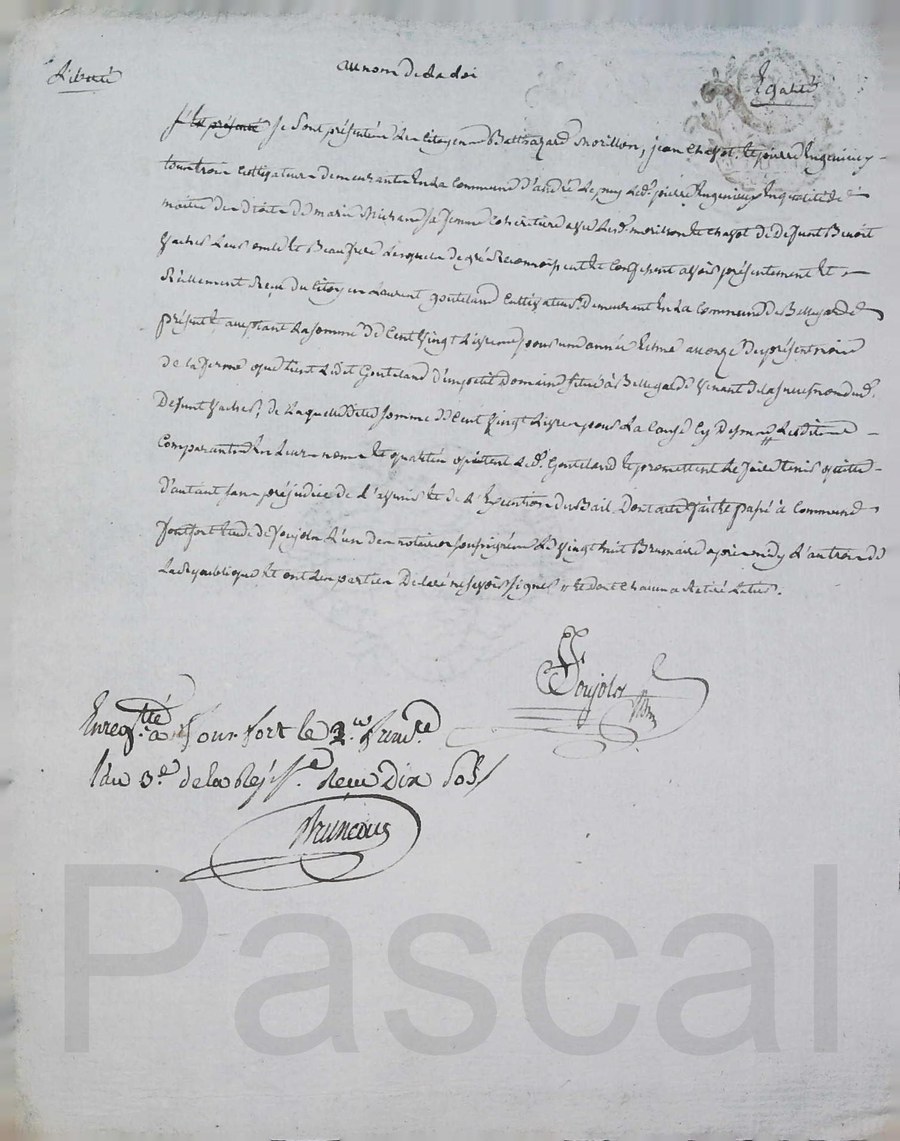 Liberté
au nom de la loi
Egalité
se sont présentés les citoyens Balthazard morillon, jean Chazot, et pierre Ingenieux
tous trois Cultivateurs demeurants En la Commune d'andré le puy led. pierre Ingenieux En qualité de
maitre des droits de marie sa femme Coheritiere avec lesd. morillon et Chazot de defunt Benoit
Vachés Leur oncle et Beaufrere Lesquels de gré Reconnoissent et Confessent avoir présentement et
Réellement Reçu du Citoyen Laurent gouteland Cultivateur demeurant En la Commune de Bellegarde
présent et acceptant La somme de Cent Vingt Livres pour une année Echue au onze du présent mois
de la ferme que tient Ledit Gouteland d'un petit domaine situé à Bellegarde Venant de la dud.
Defunt Vachés, de Laquelle dite somme de Cent Vingt Livres pour La Cause Cy dessus Lesdits
Comparants En Leurs noms et qualités quittent Led. Gouteland et promettent Le faire tenir quitte
d'autant sans préjudice de l'avenir et de l'Execution du Bail. Dont acte fait et passé à Commune
fontfort Etude de Poujola L'un des notaires soussignés Le Vingt huit Brumaire après midy L'an trois de
La Republique Et ont Les parties Declaré ne sçavoir signer de ce Enquis
Poujola
Enregtré à fontfort le 2. frimre
l'an 3e de la Rep. fe. Reçu Dix sols
Pascal